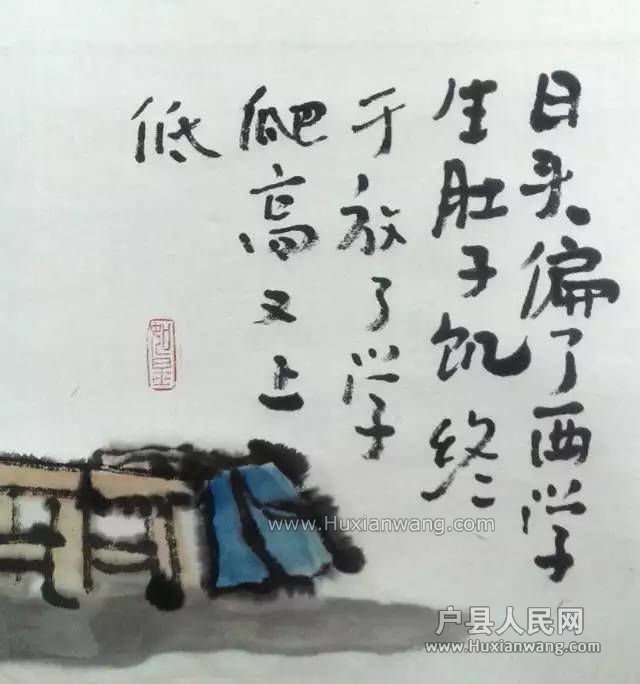 日头偏了西学
生肚子饥终
于放了学
爬高又上
低
www.Huxianwang.com
户县人民网
www.Huxianwang.com